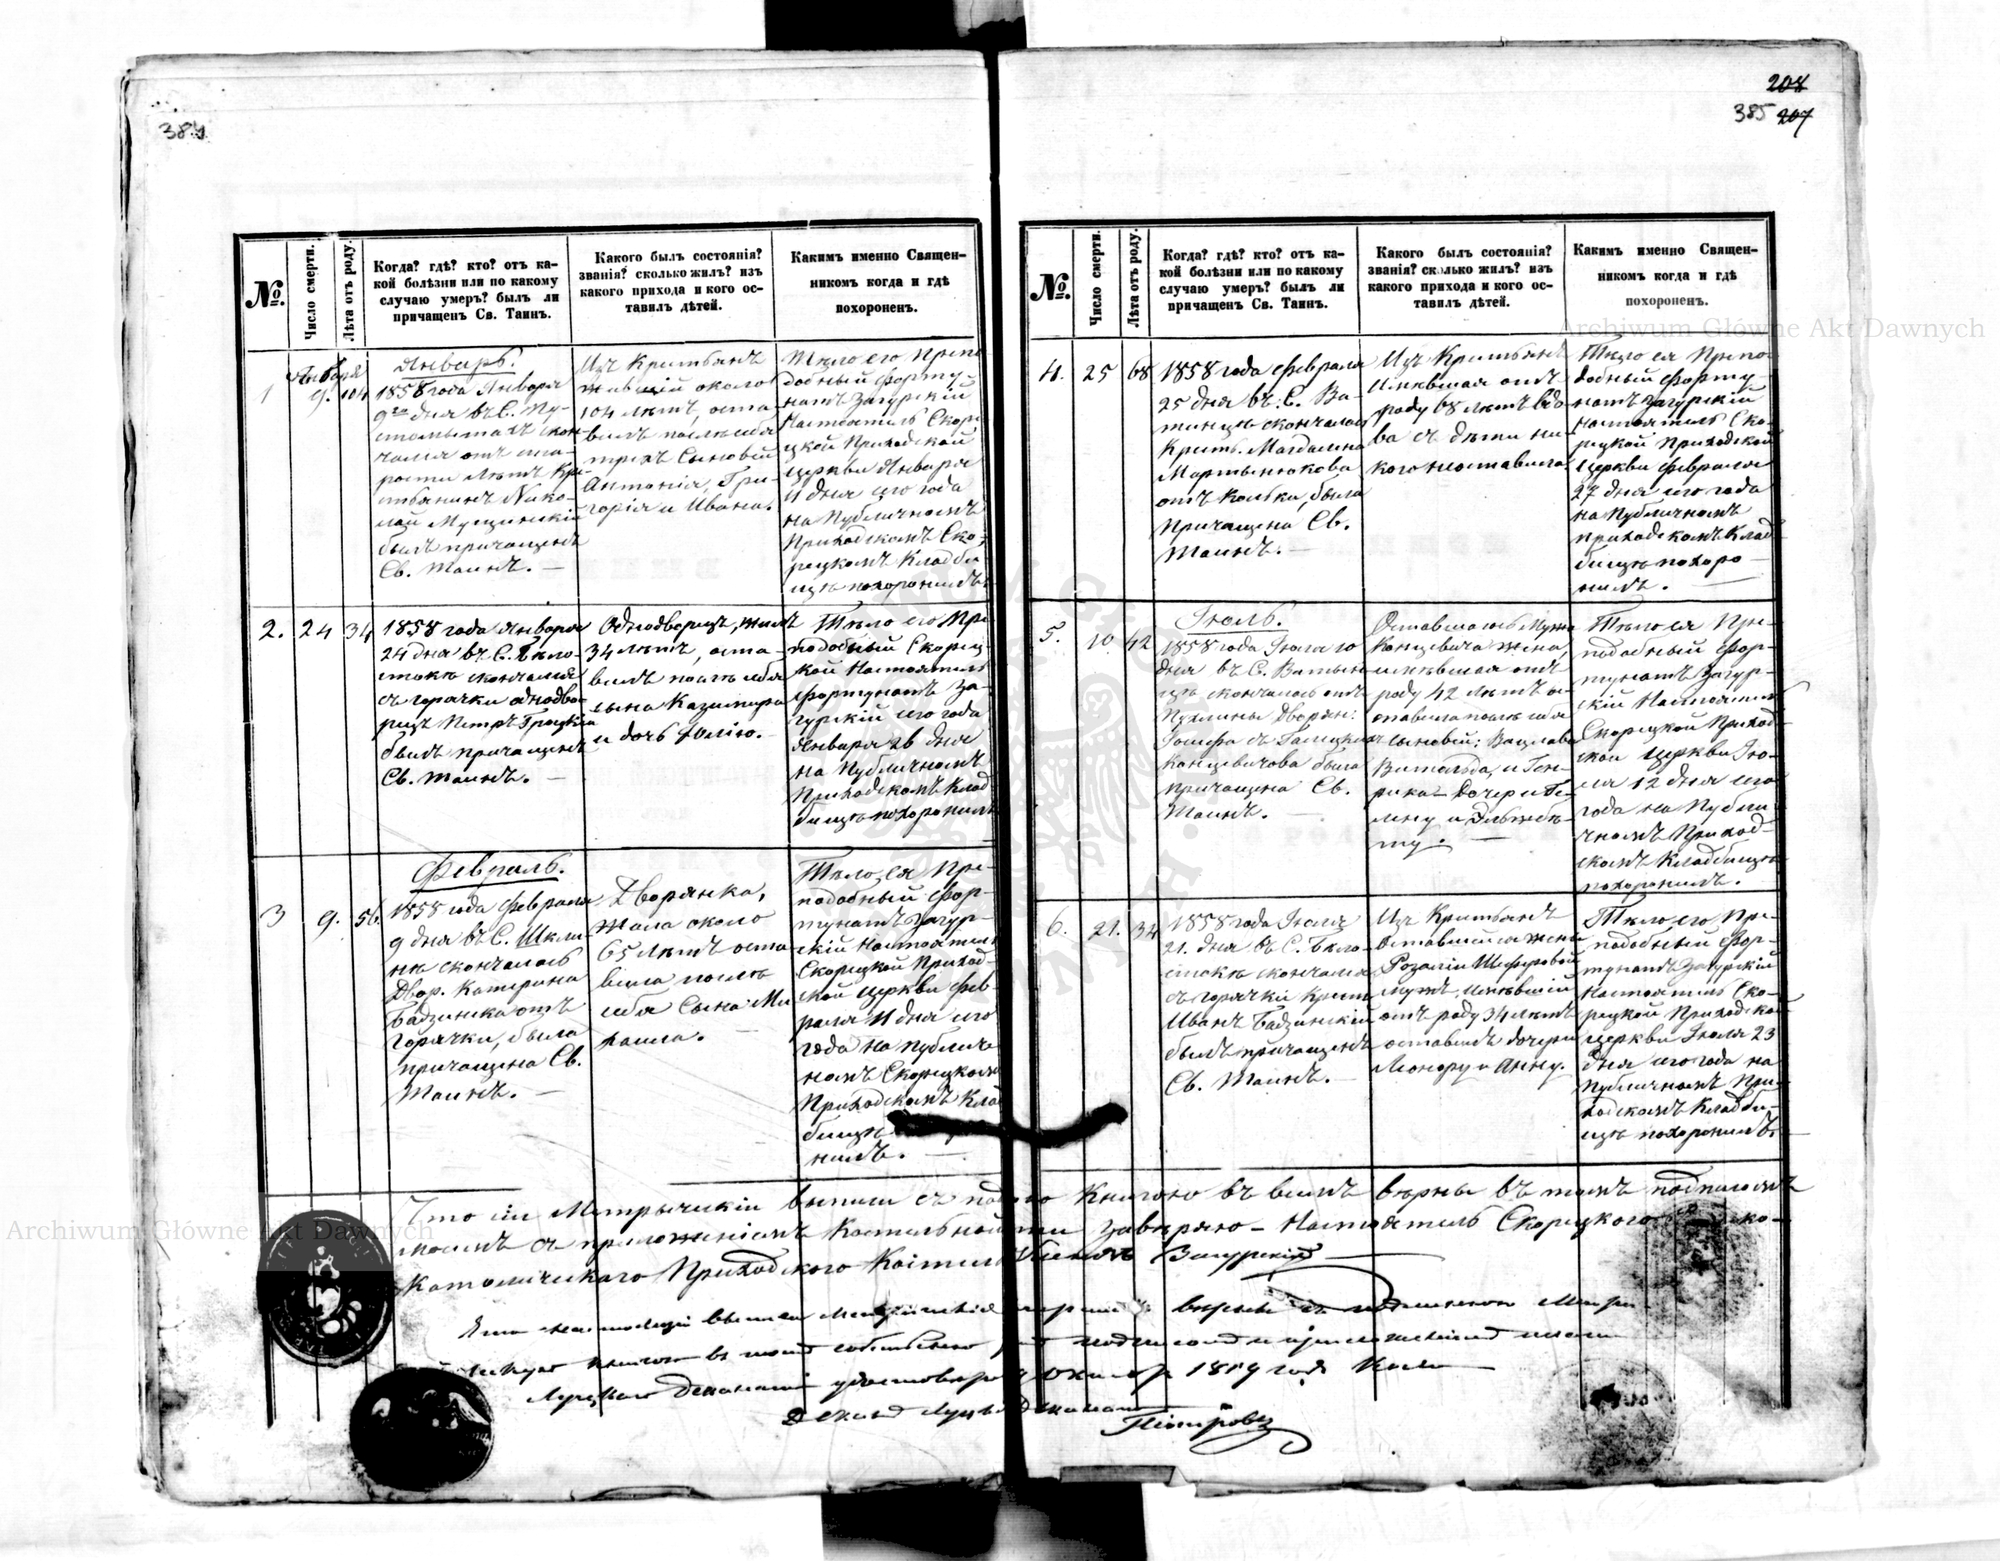 384
208
385 207
№.
Число смерти.
Лѣта отъ роду.
Когда? гдѣ? кто? отъ ка-
кой болѣзни или по какому
случаю умеръ? былъ ли
причащенъ Св. Таинъ.
Какого былъ состоянія?
званія? сколько жилъ? изъ
какого прихода и кого ос-
тавилъ дѣтей.
Каким именно Священ-
никомъ когда и гдѣ
похороненъ.
1
Января
9.
104
Январь.
1858 года Января
9го дня въ С.
скон-
чался отъ ста-
рости лѣтъ Кре-
стьянинъ Нико-
лай
былъ причащенъ
Св. Таинъ. —
Изъ Крестьянъ
жившій около
104 лѣтъ, оста-
вилъ послѣ себя
трехъ Сыновей
Антонія, Гри-
горія и Ивана.
Тѣло его Препо
добный Форту-
натъ Загурскій
Настоятель Скор
цкой Приходской
Церкви Января
11 дня сего года
на Публичномъ
Приходскомъ Ско-
рецкомъ Кладби
щѣ похоронилъ
2.
24
34
1858 года Января
24 дня въ С. Бѣло-
стокѣ скончался
съ горячки однодво-
рецъ Петръ
былъ причащенъ
Св. Таинъ. —
Однодворецъ, жилъ
34 лѣтъ, оста-
вилъ послѣ себя
сына Казимира
и дочь Юлію.
Тѣло его Пре
подобный Скорец-
кой Настоятель
Фортунатъ За-
гурскій сего года
Января 26 дня
на Публичномъ
Приходскомъ Клад
бищѣ похоронилъ
3
9.
56.
Февраль.
1858 года Февраля
9 дня въ С. Шкли-
нѣ скончалась
Двор. Катерина
Бадзинска отъ
Горячки, была
причащена Св.
Таинъ. —
Дворянка,
жила около
65 лѣтъ оста
вила послѣ
себя Сына Ми
хаила.
Тѣло ея Пре-
подобный Фор-
тунатъ Загур-
скій Настоятель
Скорецкой Приход-
ской Церкви Фев-
раля 11 дня сего
года на Публич-
номъ Скорецкомъ
Приходскомъ Клад
бищѣ
нилъ. —
№.
Число смерти.
Лѣта отъ роду.
Когда? гдѣ? кто? отъ ка-
кой болѣзни или по какому
случаю умеръ? былъ ли
причащенъ Св. Таинъ.
Какого былъ состоянія?
званія? сколько жилъ? изъ
какого прихода и кого ос-
тавилъ дѣтей.
Каким именно Священ-
никомъ когда и гдѣ
похороненъ.
4.
25
68
1858 года Февраля
25 дня въ С. Ва-
тинцѣ скончалась
Крест. Магдалина
Мартынюкова
отъ Кольки, была
Причащена Св.
Таинъ. —
Изъ Крестьянъ
Имѣвшая отъ
роду 68 лѣтъ вдо-
ва съ дѣтей ни-
кого неоставила.
Тѣло ея Препо-
добный Форту-
натъ Загурскій
Настоятель Ско-
рецкой Приходской
Церкви Февраля
27 дня сего года
на Публичномъ
приходскомъ Клад
бищѣ похоро-
нилъ. —
5.
10
42
Іюль.
1858 года Іюля 10
дня въ С. Ватын
цѣ скончалась отъ
Пухлины Дворян:
Іозефа съ
Концевичова была
причащена Св.
Таинъ. —
Оставшаюсь Мужа
Концевича жена,
имѣвшая отъ
роду 42 лѣтъ о-
ставила послѣ себя
сыновей: Вацлава
Витольда, и Ген-
рика — Дочери Ге-
лену и Эльжбѣ-
ту. —
Тѣло ея Пре-
подобный Фор-
тунатъ Загур-
скій Настоятель
Скорецкой Приход-
ской Церкви Ію-
ля 12 дня сего
года на Публи-
чномъ Приход-
скомъ Кладбищѣ
похоронилъ. —
6.
21.
34
1858 года Іюля
21. дня въ С. Бѣло-
стокѣ скончался
съ горячки Крест
Иванъ Бадзинскій
былъ причащенъ
Св. Таинъ. —
Изъ Крестьянъ
Оставшейся жены
Розаліи
мужъ, имѣвшій
отъ роду 34 лѣтъ
оставилъ дочери
Леонору и Анну.
Тѣло его Пре-
подобный Фор-
тунатъ Загурскій
Настоятель Ско-
рецкой Приходской
Церкви Іюля 23
дня сего года на
Публичномъ При-
ходскомъ Кладби-
щѣ похоронилъ.
Что сіи Метрическіи выписи съ Книгою въ всемъ вѣрны въ томъ подписомъ
моимъ съ приложеніемъ завѣряю — Настоятель Скорецкого
Католическаго Приходского Загурскій
вѣрны съ
въ
Луцкого 1859 года
Деканъ
Archiwum Główne Akt Dawnych
Archiwum Główne Akt Dawnych